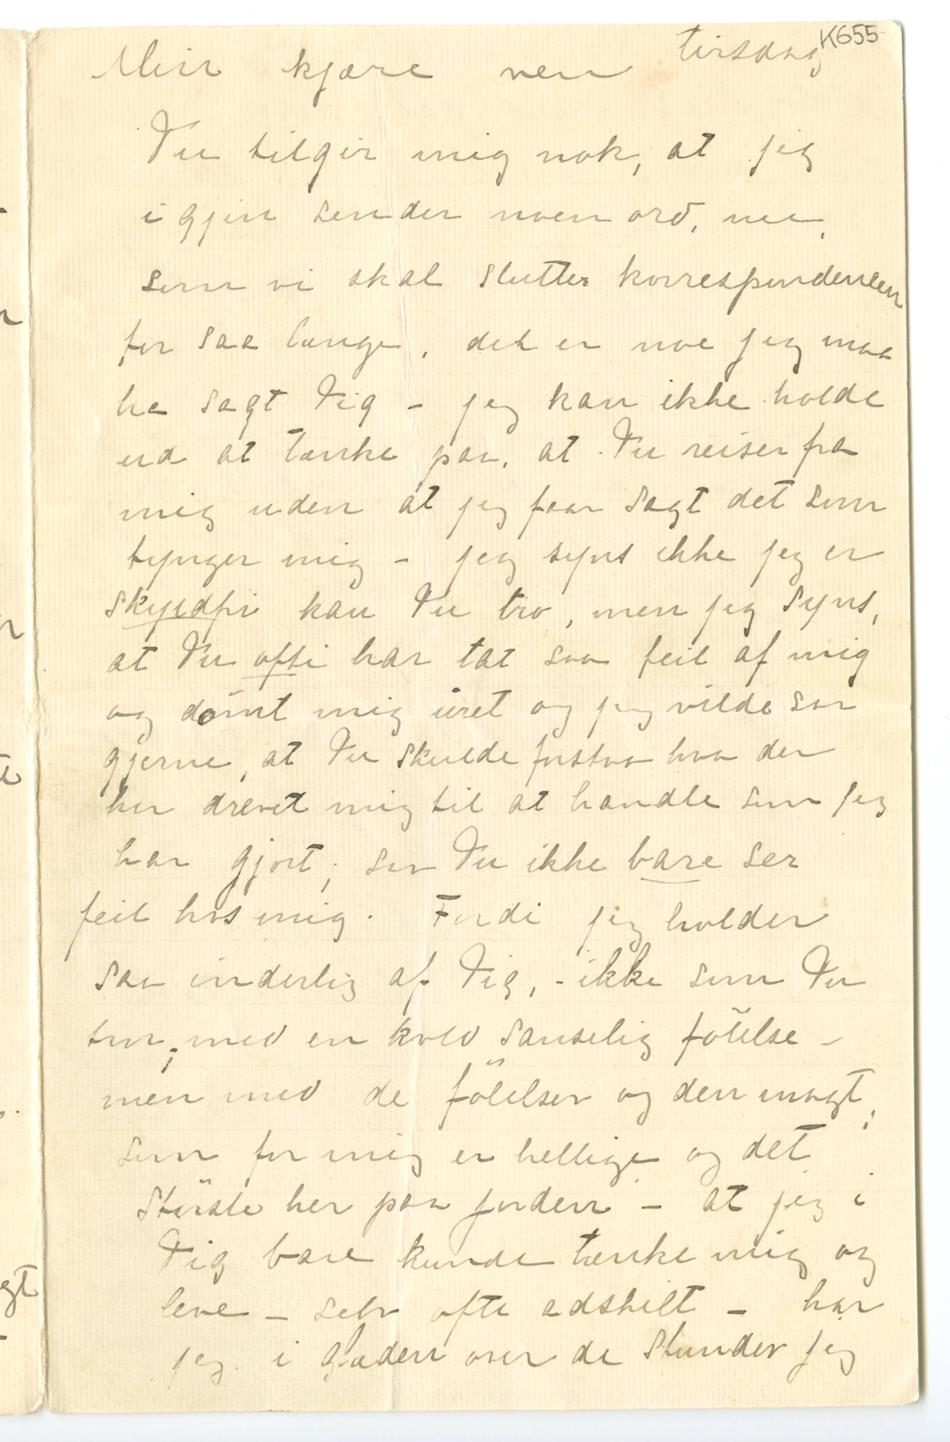 K655
tirsdag
Min kjære ven
Du tilgir mig nok, at jeg
igjen sender noen ord, nu,
som vi skal slutte korrespondencen
for saa længe, det er noe jeg maa
ha sagt Dig – jeg kan ikke holde
ud at tænke paa, at Du reiser fra
mig uden at jeg faar sagt det som
tynger mig – jeg syns ikke jeg er
skyldfri kan Du tro, men jeg syns,
at Du ofte har tat saa feil af mig
og dömt mig uret og jeg vilde saa
gjerne, at Du skulde forstaa hva der
har drevet mig til at handle som jeg
har gjort, saa Du ikke bare ser
feil hos mig. Fordi jeg holder
saa inderlig af Dig, – ikke som Du
tror, med en kold sanselig fölelse –
men med de fölelser og den magt,
som for mig er hellige og det
störste her paa jorden – at jeg i
Dig bare kunde tænke mig og
leve – selv ofte adskilt – har
jeg i glæden over de stunder jeg